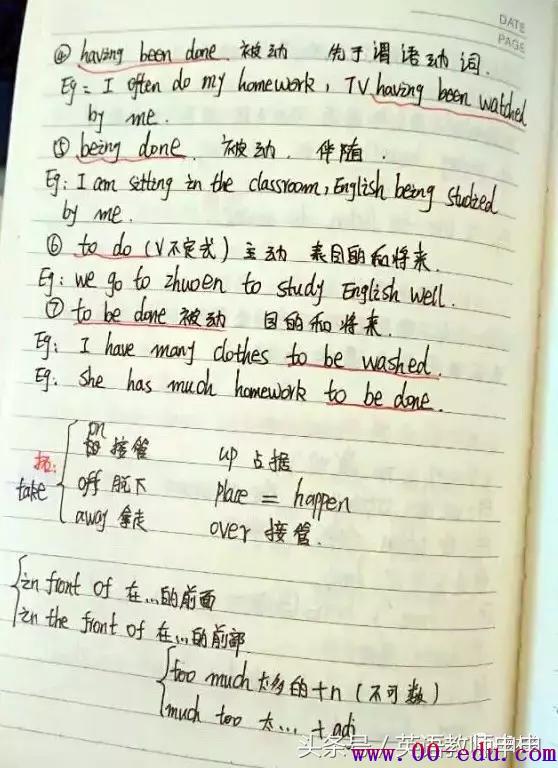 DATE
PAGE
④ having been done 被动 先于谓语动词.
Eg = I often do my homework, TV having been watched
by me.
⑤ being done. 被动. 伴随.
Eg: I am sitting in the classroom, English being studied
by me.
⑥ to do (V不定式) 主动 表目的和将来.
Eg: we go to zhuoen to study English well.
⑦ to be done 被动 目的和将来.
Eg: I have many clothes to be washed.
Eg: She has much homework to be done.
take
on 接管 up 占据
off 脱下 place = happen
away 拿走 over 接管.
in front of 在...的前面
in the front of 在...的前部
too much 太多的+n (不可数)
much too 太... + adj
头条号/英语教师冉冉
www.00-edu.com